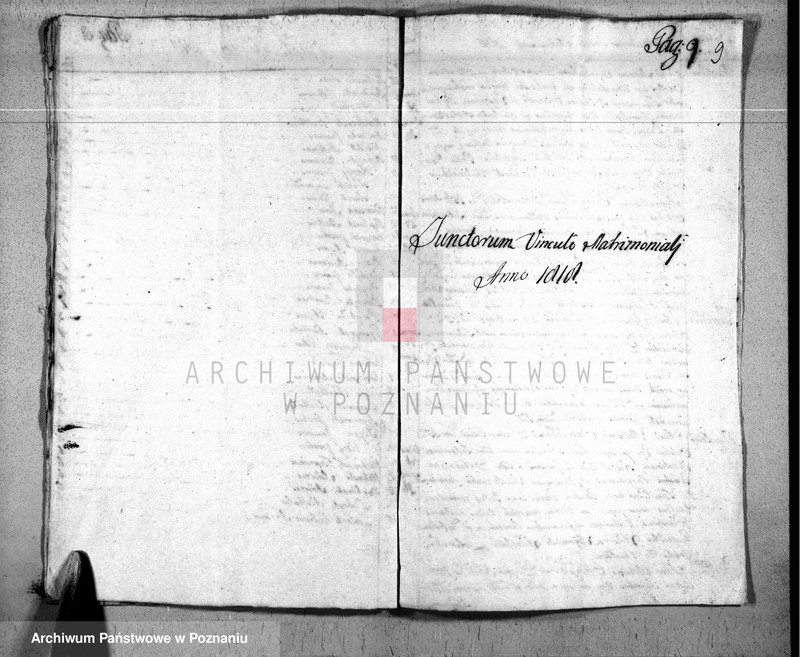 Pag: 9. 9
Junctorum Vinculo Matrimonialj
Anno 1818.
ARCHIWUM PAŃSTWOWE
W POZNANIU
Archiwum Państwowe w Poznaniu